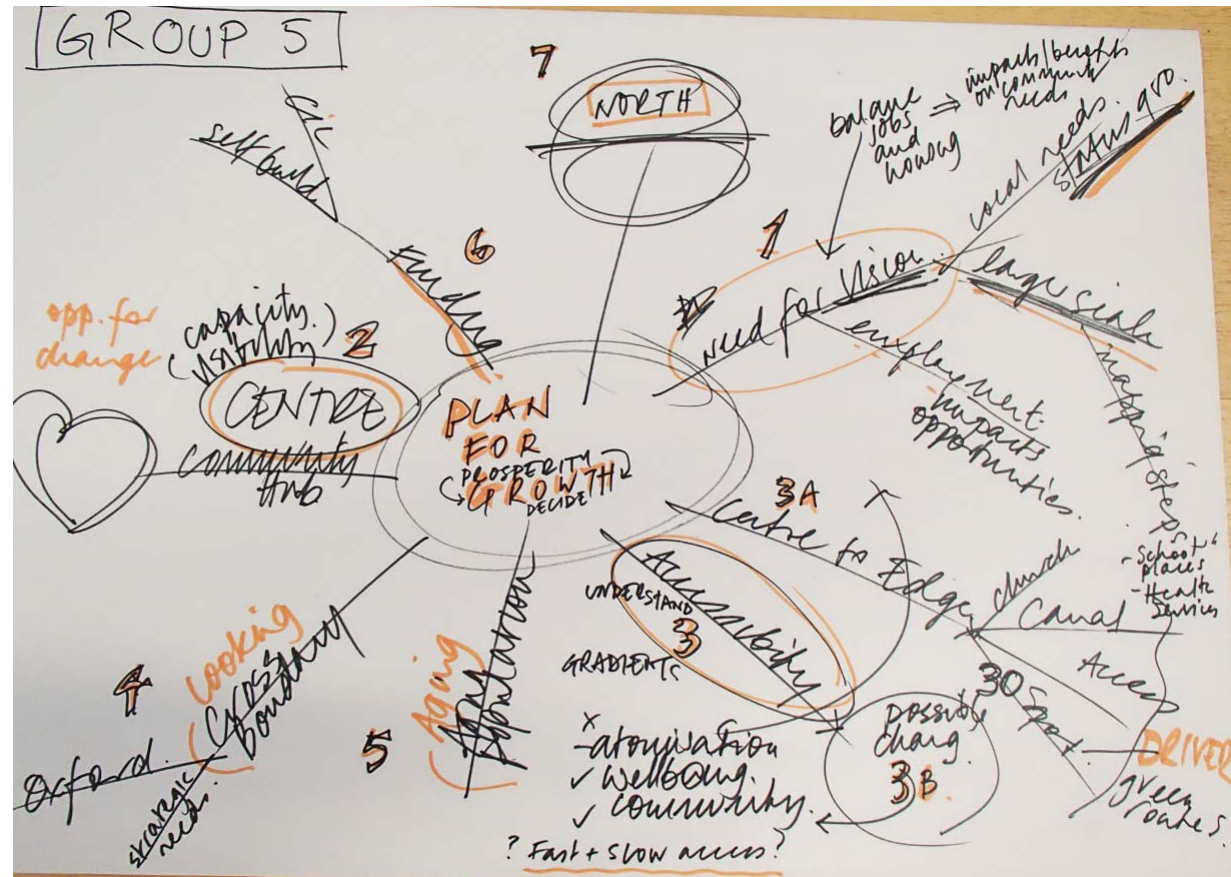 GROUP 5
7
NORTH
balance
jobs
and
housing
⇒ impacts/benefits
on community
needs
local needs.
status quo.
1
Need for Vision
large scale
employment
impacts
opportunities.
mapping
- School
places
- Health
Services
CIC
self build
6
Funding
opp. for
change
(capacity.)
visibility
2
CENTRE
Community
Hub
PLAN
FOR
PROSPERITY
GROWTH
DECIDE
3A
x
Centre to Edge
church
Canal
Access
30
Sport
DRIVER
green
routes.
Accessibility
UNDERSTAND
3
GRADIENTS
possible
chang.
3B
x
- atomisation
✓ wellbeing.
✓ community.
? Fast + slow access?
Aging
Aging
Population
5
looking
Cross
boundary
4
Oxford.
strategic
needs.